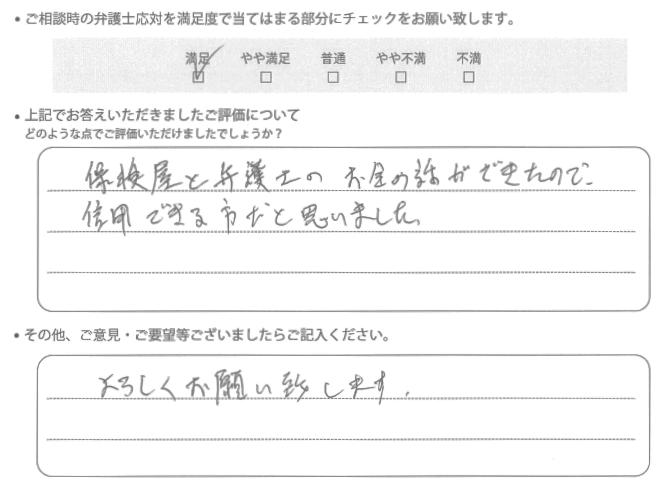 • ご相談時の弁護士応対を満足度で当てはまる部分にチェックをお願い致します。
満足 やや満足 普通 やや不満 不満
• 上記でお答えいただきましたご評価について
どのような点でご評価いただけましたでしょうか？
保険屋と弁護士の お金の話ができたので、
信用できる方だと思いました。
• その他、ご意見・ご要望等ございましたらご記入ください。
よろしくお願い致します。